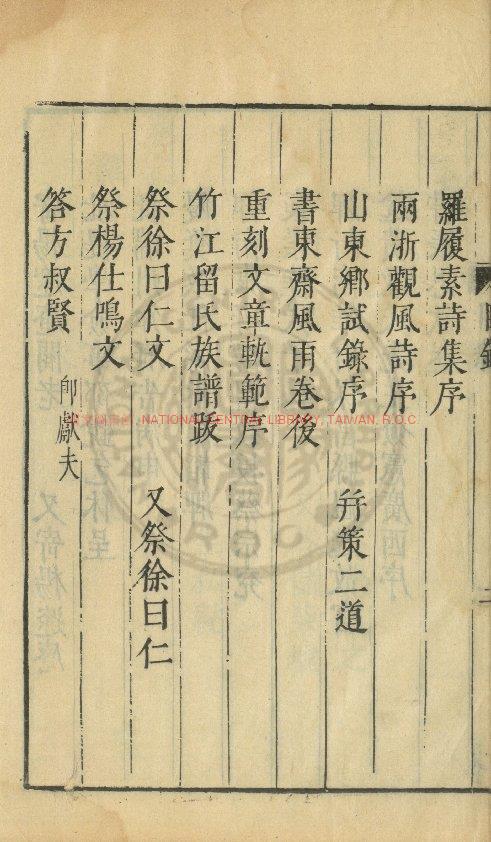 羅履素詩集序
兩浙觀風詩序
山東鄉試錄序 并策二道
書東齋風雨卷後
重刻文章軌範序
竹江留氏族譜跋
祭徐曰仁文 又祭徐曰仁
祭楊仕鳴文
答方叔賢 卽獻夫
NATIONAL CENTRAL LIBRARY, TAIWAN, R.O.C